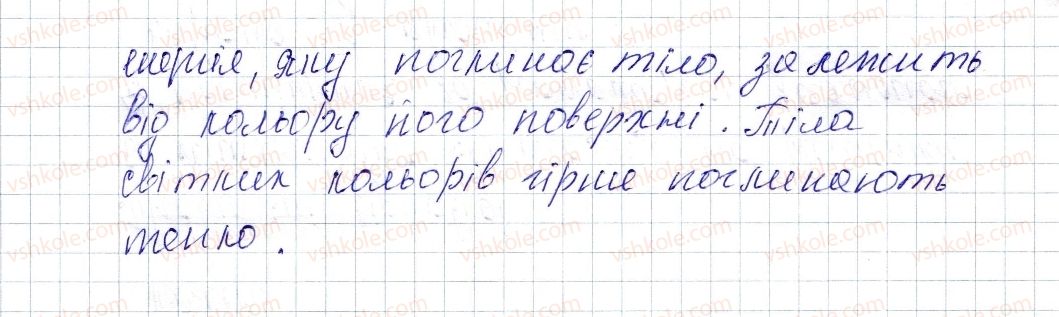 енергія, яку поглинає тіло, залежить
від кольору його поверхні. Тіла
світлих кольорів гірше поглинають
тепло.